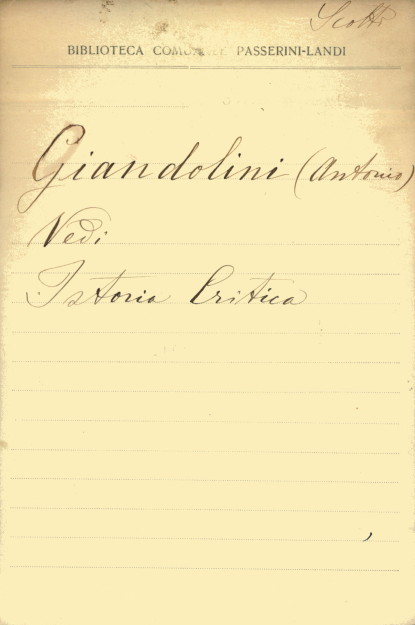 Scotti
BIBLIOTECA COMUNALE PASSERINI-LANDI
Giandolini (Antonio)
Vedi
Istoria Critica